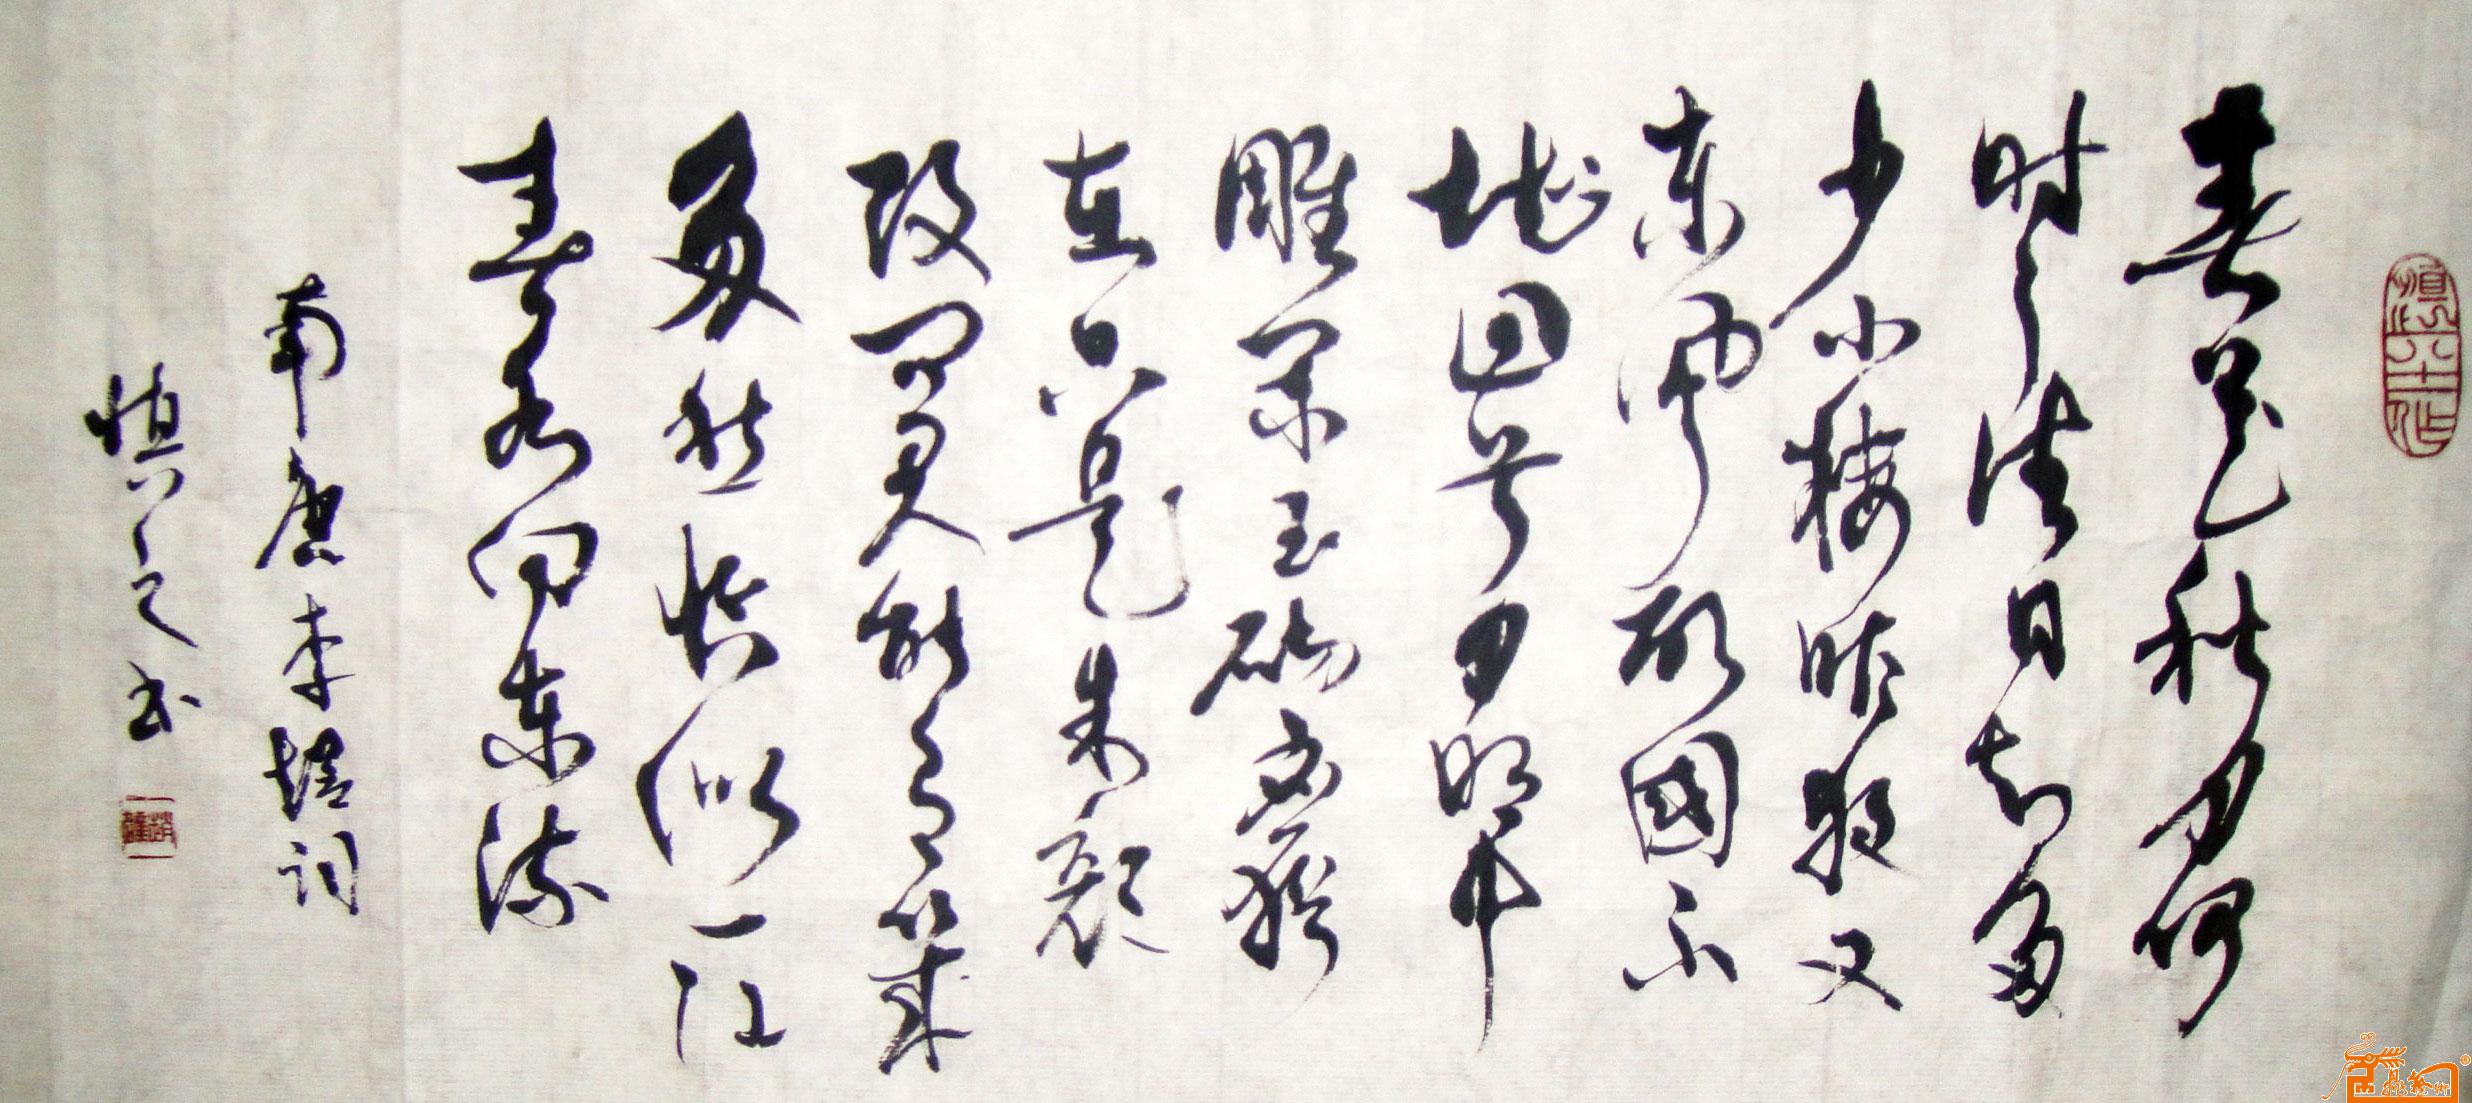 春花秋月何
时了往日知多
少小楼昨夜又
东风故國不
堪回首月明中
雕栏玉砌应犹
在只是朱颜
改问君能有幾
多愁恰似一江
春水向东流
南唐李煜词
慎之书